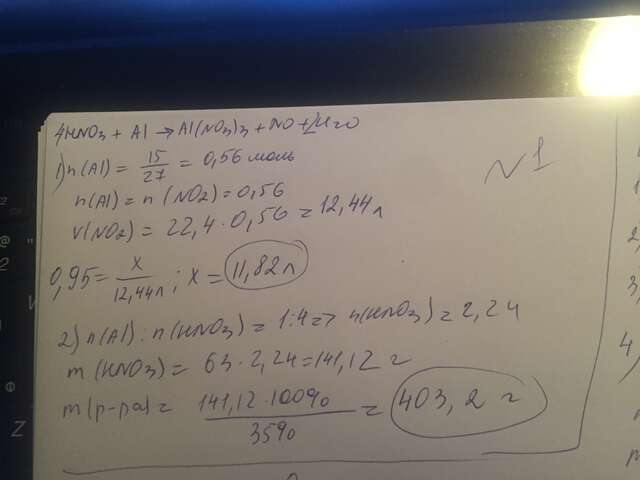 4HNO₃ + Al → Al(NO₃)₃ + NO + 2H₂O
1) n(Al) = 15/27 = 0,56 моль
n(Al) = n(NO₂) = 0,56
V(NO₂) = 22,4 · 0,56 = 12,44 л
0,95 = x/12,44л ; x = 11,82 л
2) n(Al) : n(HNO₃) = 1:4 => n(HNO₃) = 2,24
m(HNO₃) = 63 · 2,24 = 141,12 г
m(р-ра) = 141,12 · 100% / 35% = 403,2 г
N1